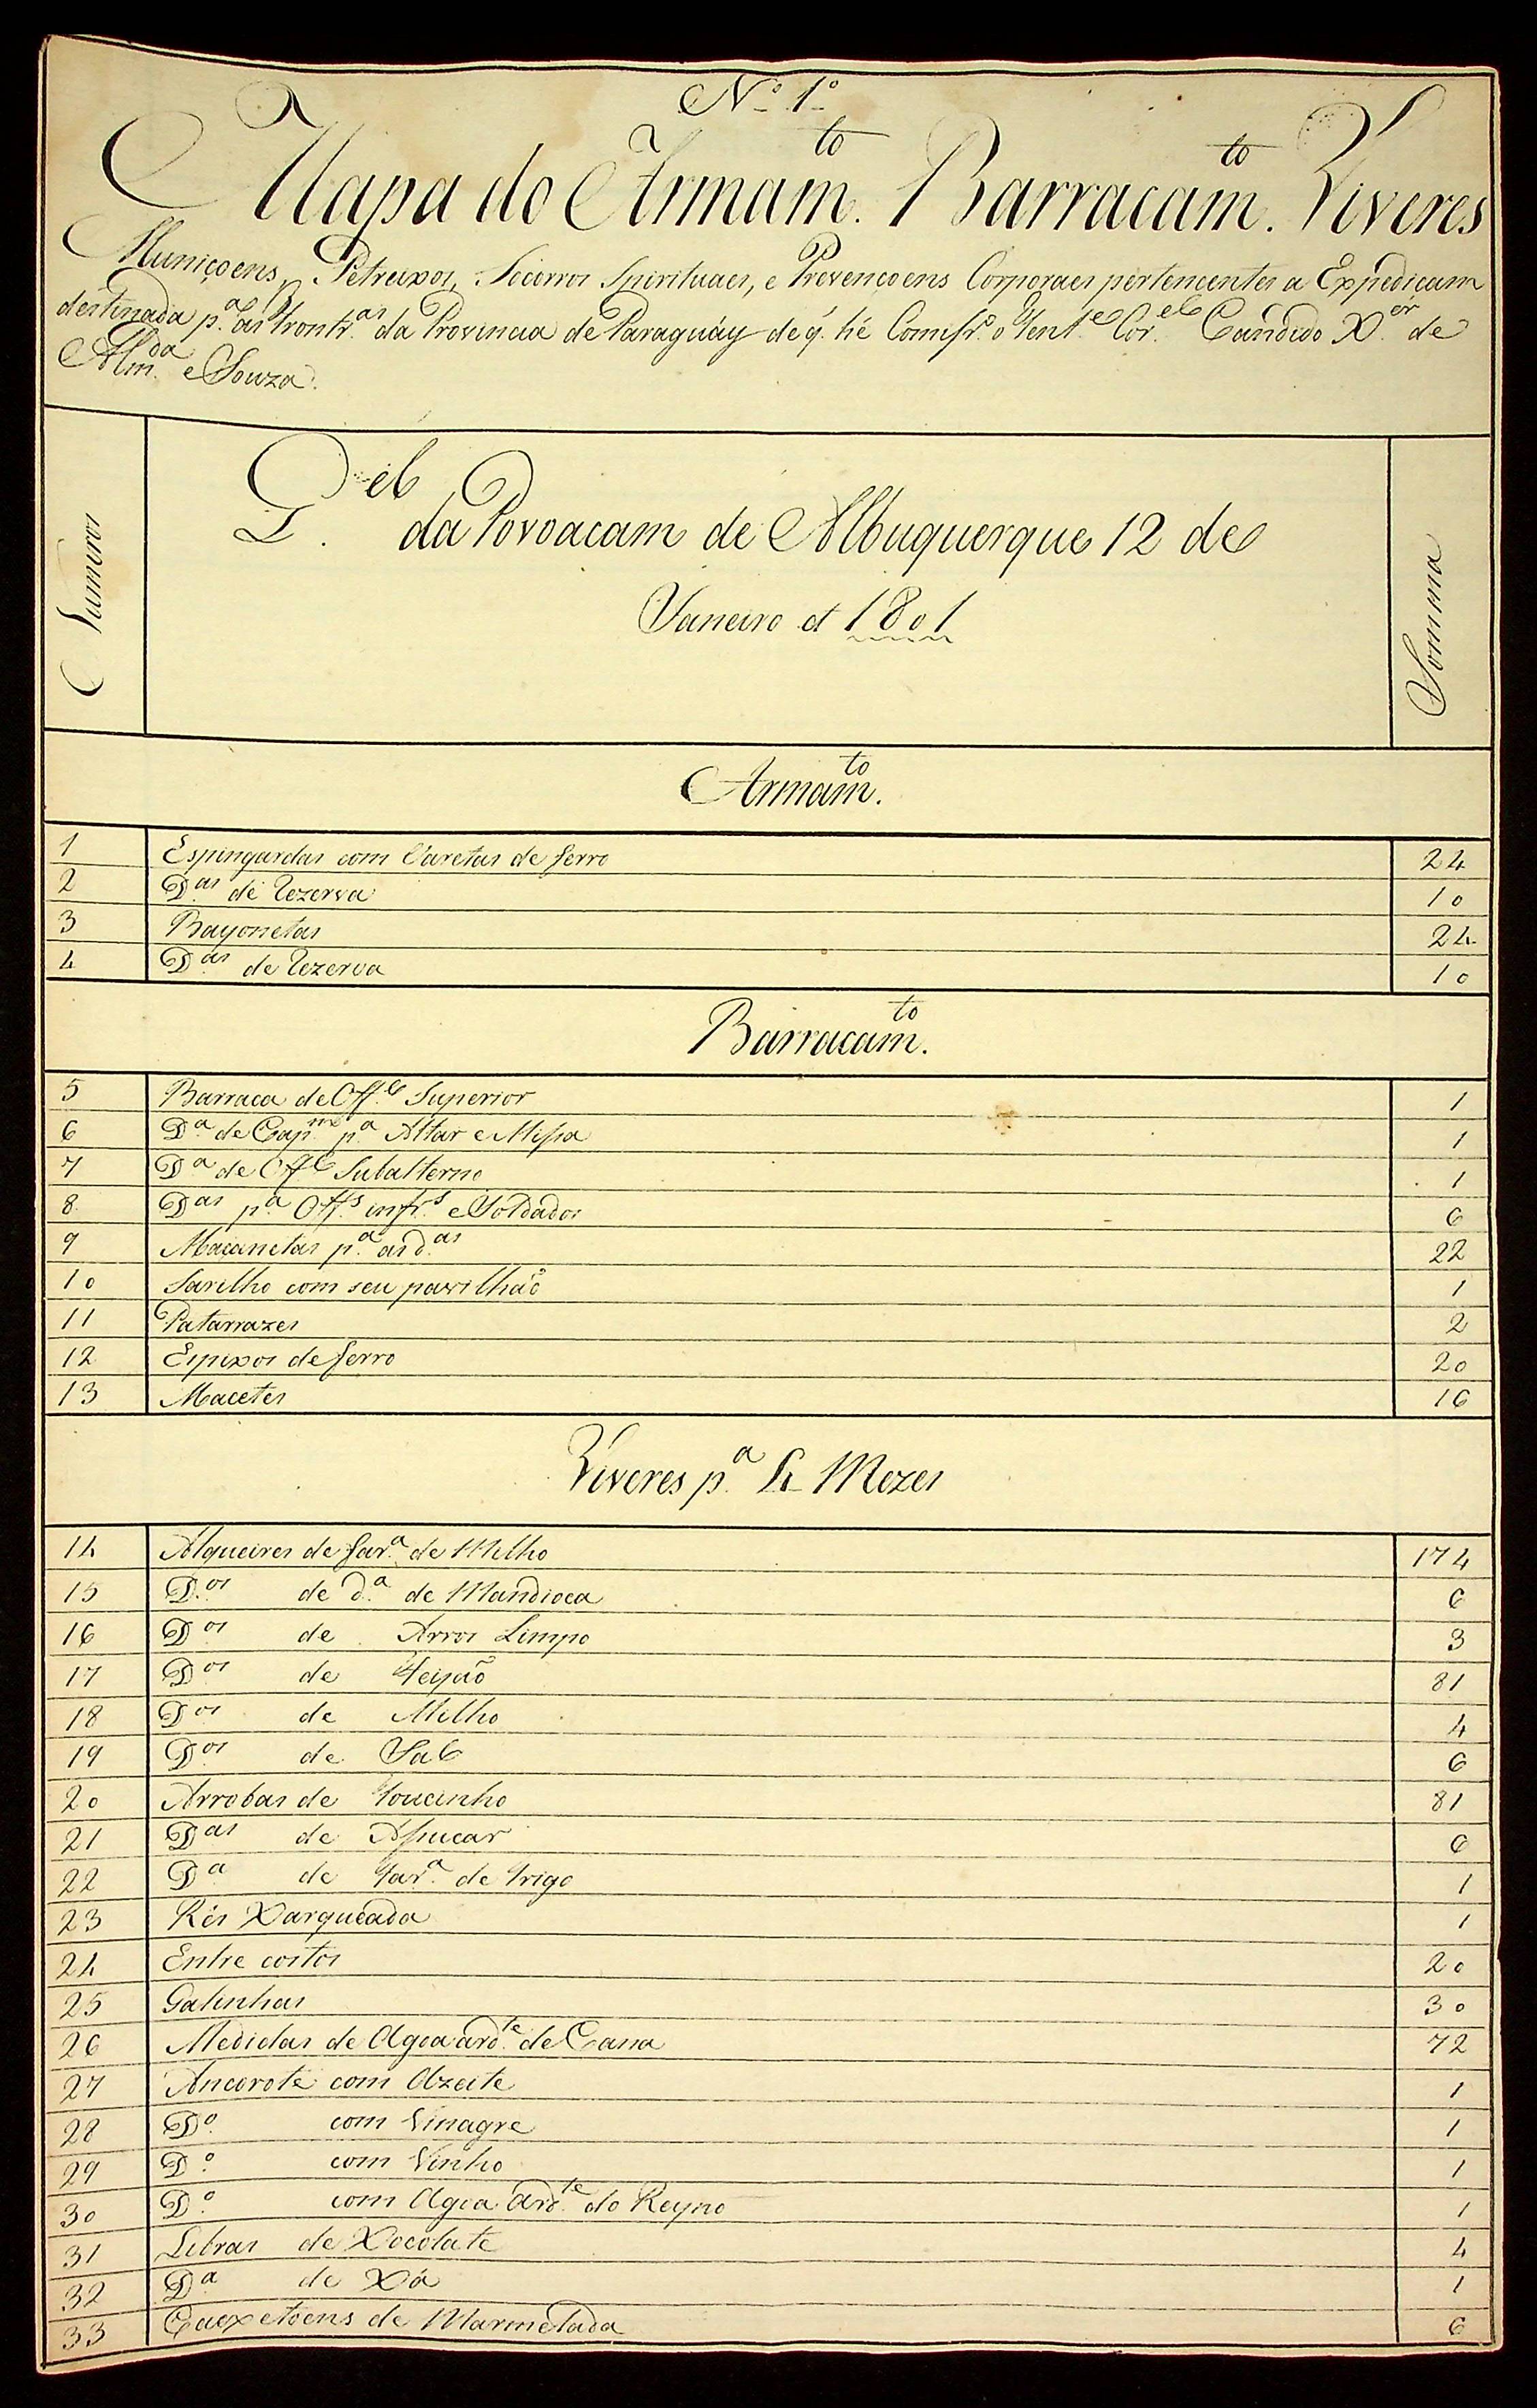 N.º 1.º
Mapa do Armam.to Barracam.to Viveres
Muniçoens, Petrexos, Socorros Spirituaes, e Prevençoens Corporaes pertencentes a Expedicam
destinada p.a as Frontr.as da Provincia de Paraguáy de q. hé Comiss.o o Tent.e Cor.el Candido X.er de
Alm.da e Souza.
Numeros
Q.el da Povoacam de Albuquerque 12 de
Janeiro d 1801
Somma
Armam.to
1 Espingardas com Varetas de ferro 24
2 D.as de rezerva 10
3 Bayonetas 24
4 D.as de rezerva 10
Barracam.to
5 Barraca de Off.e Superior 1
6 D.a de Cap.m p.a Altar e Missa 1
7 D.a de Off.e Subalterno 1
8 D.as p.a Off.s infr.s e Soldados 6
9 Macanetas p.a as d.as 22
10 Sarilho com seu pavilhão 1
11 Patarrazes 2
12 Espixos de ferro 20
13 Macetes 16
Viveres p.a 4 Mezes
14 Alqueires de far.a de Milho 174
15 D.os de d.a de Mandioca 6
16 D.os de Arros Limpo 3
17 D.os de Feijaõ 81
18 D.os de Milho 4
19 D.os de Sal 6
20 Arrobas de Toucinho 81
21 D.as de Assucar 6
22 D.a de Far.a de Trigo 1
23 Rês Xarqueada 1
24 Entre costos 20
25 Galinhas 30
26 Medidas de Agoa ard.te de Cana 72
27 Ancorote com Azeite 1
28 D.o com Vinagre 1
29 D.o com Vinho 1
30 D.o com Agoa Ard.te do Reyno 1
31 Libras de Xocolate 4
32 D.a de Xá 1
33 Caexetoens de Marmelada 6